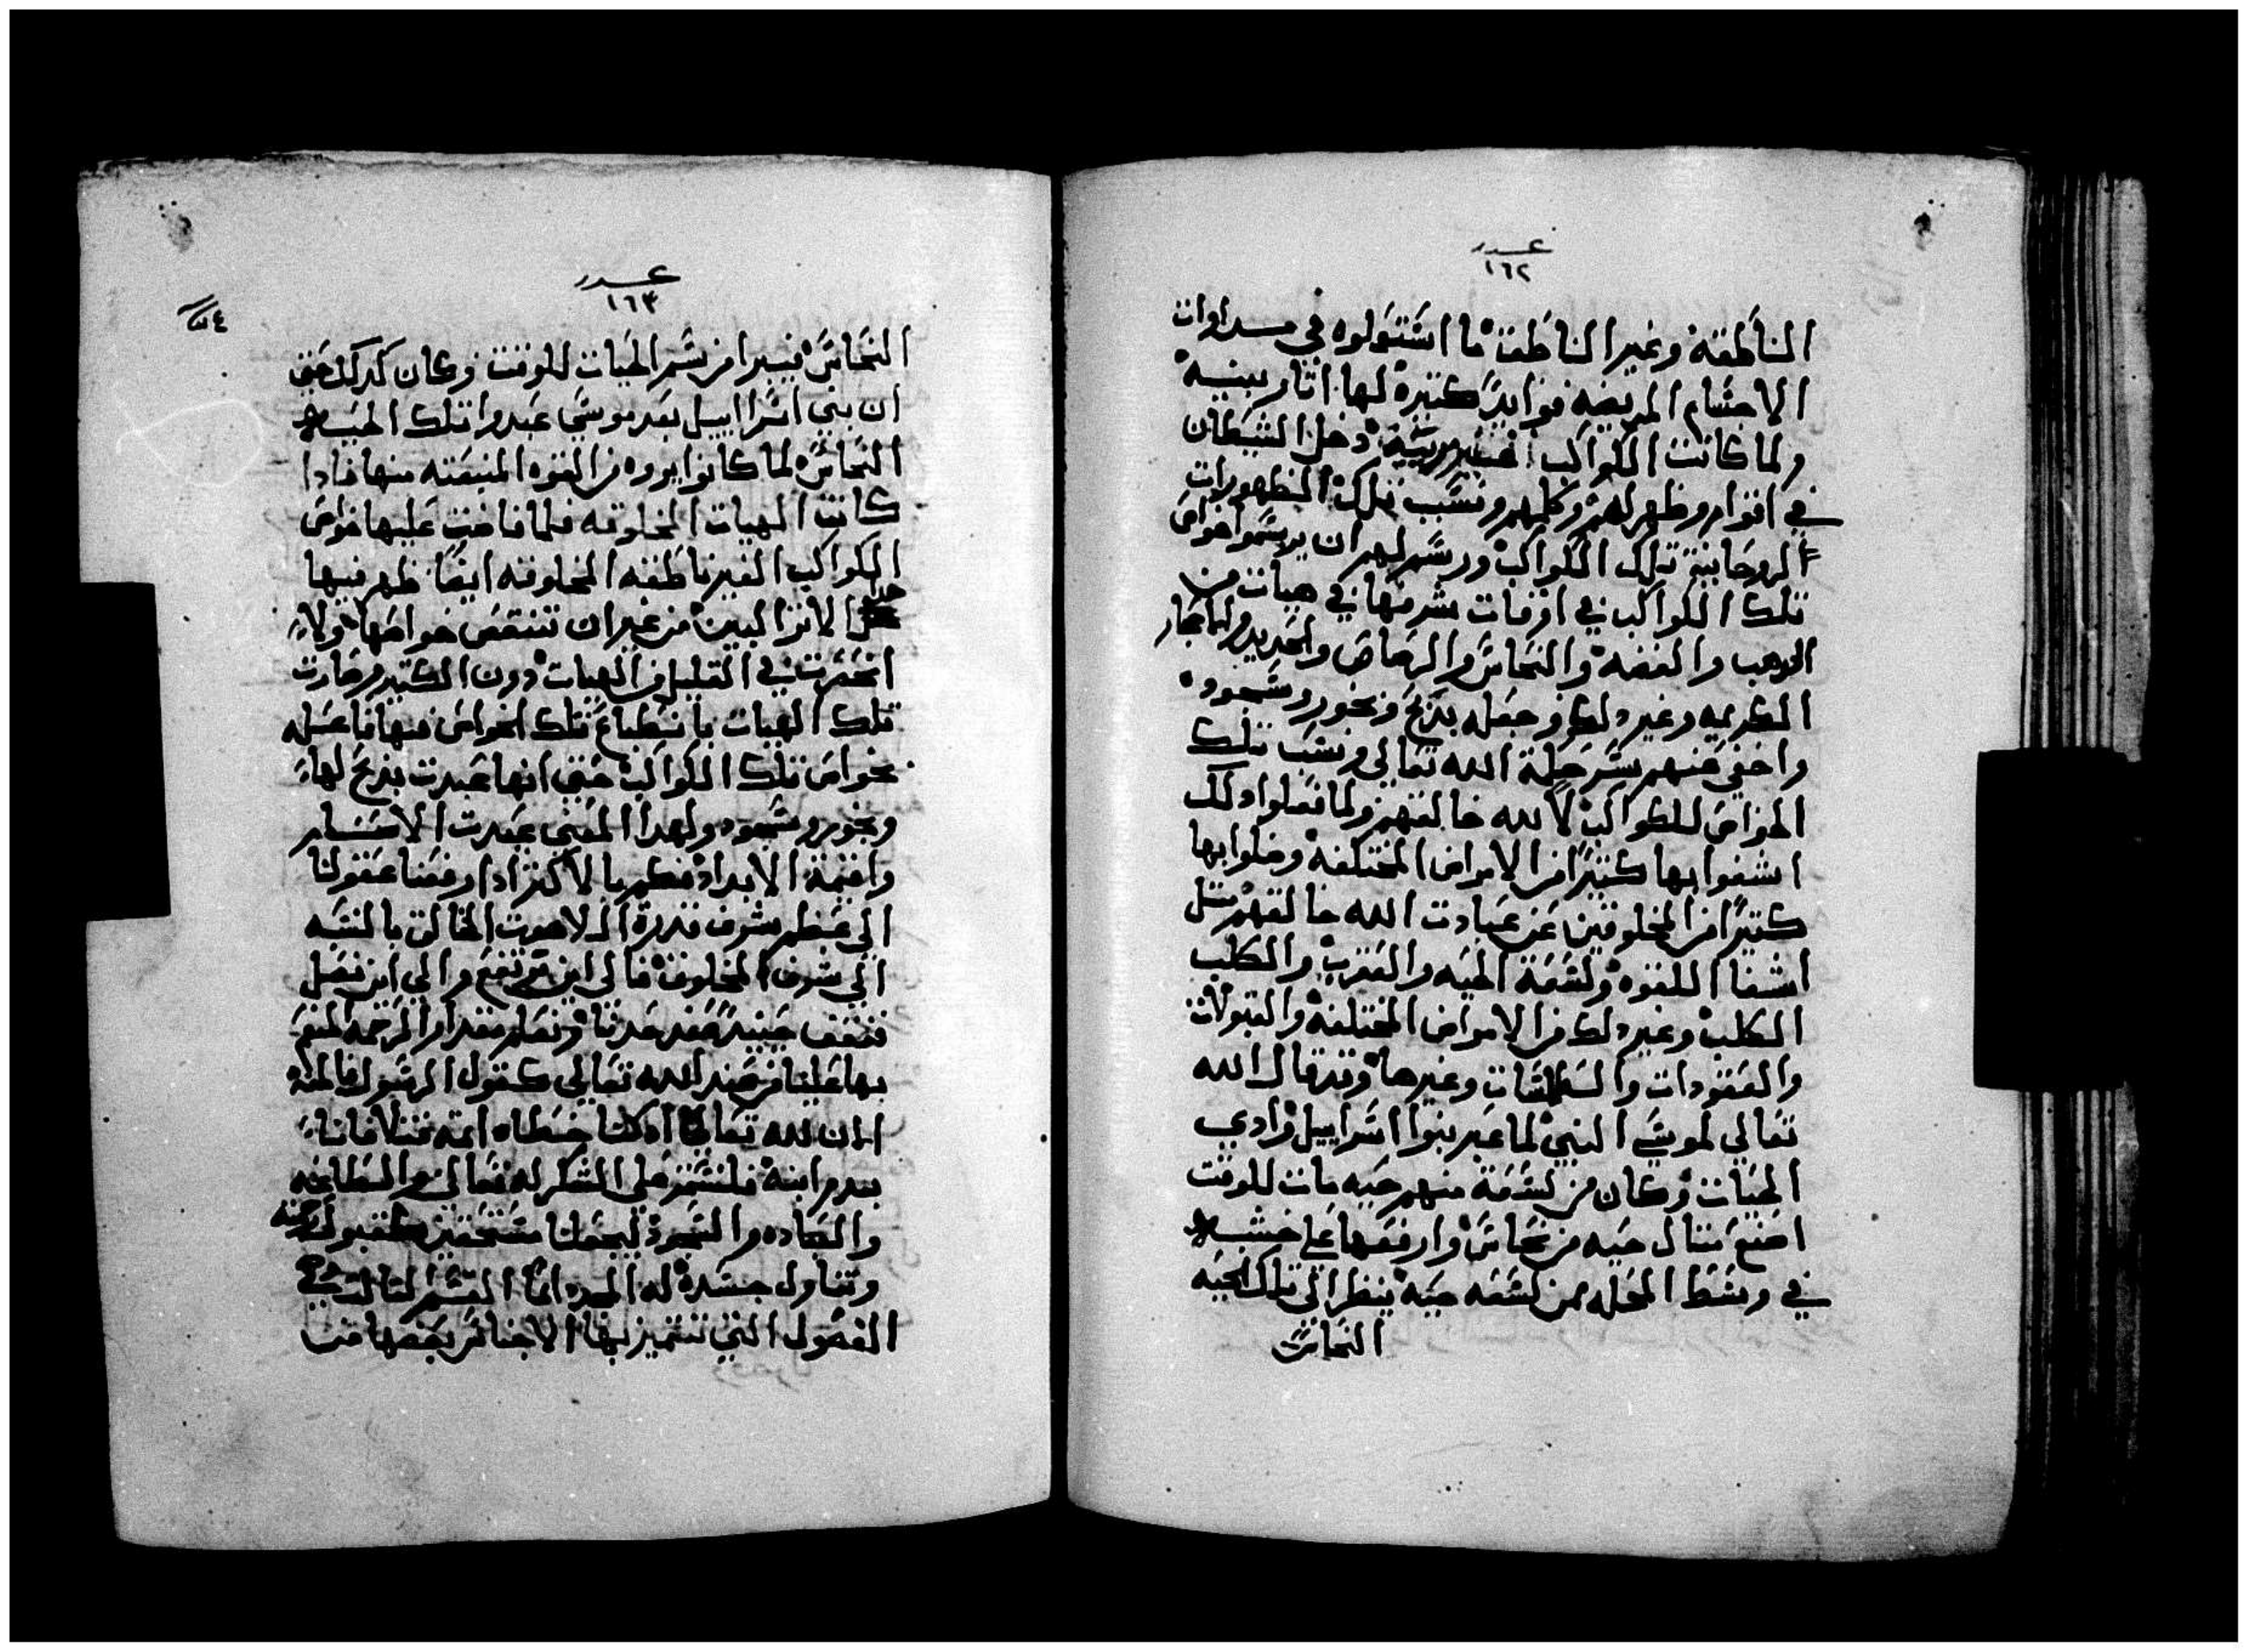 عدد
١٦٢
الناطقة وغير الناطقة ما اشتولوه في مداوات
الاجسام المريضه فوايد كتيرة لها اتار بينيه
ولما كانت الكواكب دخل الشيطان
في اقوام وظهر لهم وكلمهم ونسب تلك الظهورات
الروحانية تلك الكواكب ورسم لهم ان يرسموا خواص
تلك الكواكب في اوقات شرفها في هيات من
الدهب والفضه والنحاس والرصاص والحديد والاحجار
الكريمه وغير دلك وجعله بدبح وبخور وسجود
واخفي عنهم سر حكمة الله تعالي ونسب تلك
الخواص للكواكب لا لله خالقهم ولما فعلوا دلك
اشفوا بها كتيرا من الامراض المختلفة وضلوا بها
كتيرا من المخلوقين عن عبادت الله خالقهم متل
اشفا اللقوه ولسعة الحيه والعقرب والكلب
الكلب وغير دلك من الامراض المختلفة والقبولات
والعقودات والطلسمات وغيرها وقد قال الله
تعالي لموسي النبي لما عبر بنوا اسراييل وادي
الحيات وكان من لسعة منهم حيه مات للوقت
اصنع متال حيه من نحاس وارفعها علي خشبه
في وسط المحله فمن لسعه حية ينظر الي تلك الحيه
النحاس
عدد
١٦٣
النحاس فيبرا من سم الحيات للوقت وكان كدلك حتي
ان بني اسراييل بعد موسي عبدوا تلك الحيه
النحاس لما كانوا يروه من القوه المنبعته منها فادا
كانت الهيات المخلوقه فلما فاضت عليها خواص
الكواكب الغير ناطقه المخلوقه ايضا ظهر فيها
الاتر البين من غير ان تنقص خواصها ولا
انحصرت في القليل من الهيات دون الكتير وصارت
تلك الهيات بانطباع تلك الخواص فيها فاعله
بخواص تلك الكواكب حتي انها عبدت بدبح لها
وبخور وسجود ولهدا المعني عبدت الاصنام
واقيمة الابداد فكم بالاكتر ادا رفعنا عقولنا
الي عظم شرف قدرة اللاهوت الخالق بالنسبه
الي شرف المخلوق فالي اين ترتفع والي اين نصل
فنقف حينيد عند حدنا ونعلم مقدار الرحمه المنعم
بها علينا من عند الله تعالي كقول الرسول
ان الله تعالي اد كنا خطاه اتمه قتلا فانا
بدم ابنة فلنستمر علي الشكر له تعالي والطاعه
والعباده والسجود ليجعلنا مستحقين لقبول
وتناول جسدة له المجد دايما القسم التالت في
الفصول التي تتميز بها الاجناس بعضها من